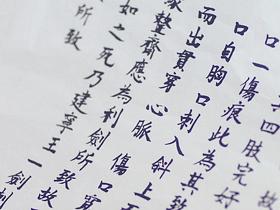 四肢完好
一傷痕此為其致
口自胸口刺入斜上
而出貫穿心脈傷口
整齊應為利劍所致故
如之死乃建寧王一劍
所致